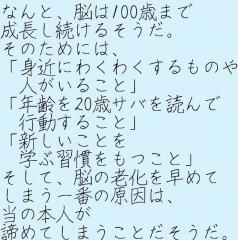 なんと、脳は100歳まで
成長し続けるそうだ。
そのためには、
「身近にわくわくするものや
人がいること」
「年齢を20歳サバを読んで
行動すること」
「新しいことを
学ぶ習慣をもつこと」
そして、脳の老化を早めて
しまう一番の原因は、
当の本人が
諦めてしまうことだそうだ。